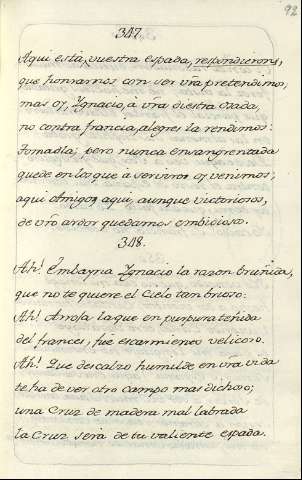 92
347.
Aqui està, vuestra espada, respondieron,
que honrarnos con ser vr̃a pretendimos,
mas oy, Ygnacio, à vra diestra osada,
no contra francia, alegres la rendimos:
Tomadla; pero nunca ensangrentada
quede en lo que à serviros oy venimos;
aqui Amigos, aqui, aunque victoriosos,
de vr̃o ardor quedamos embidiosos.
348.
Ah! Embayna Ygnacio la razon bruñida,
que no te quiere el Cielo tan brioso:
Ah! Arroja la que en purpura teñida
del frances, fue escarmiento velicoso.
Ah! Que descalzo humilde en vr̃a vida
te ha de ver otro campo mas dichoso;
una Cruz de madera mal labrada
la Cruz serà de tu valiente espada.